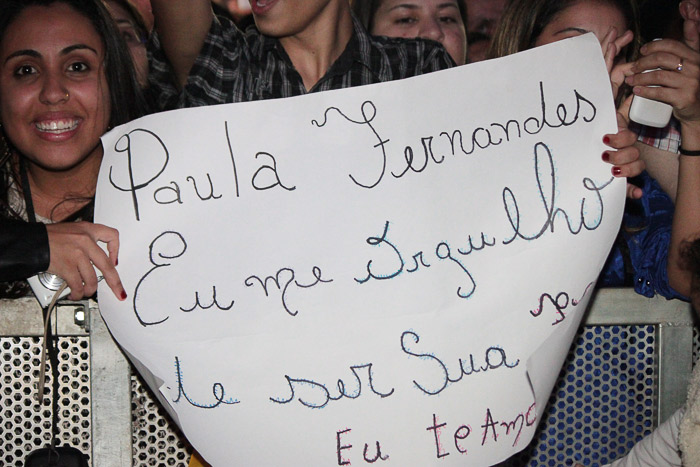 Paula Fernandes
Eu me orgulho
te ser Sua
Eu te Amo